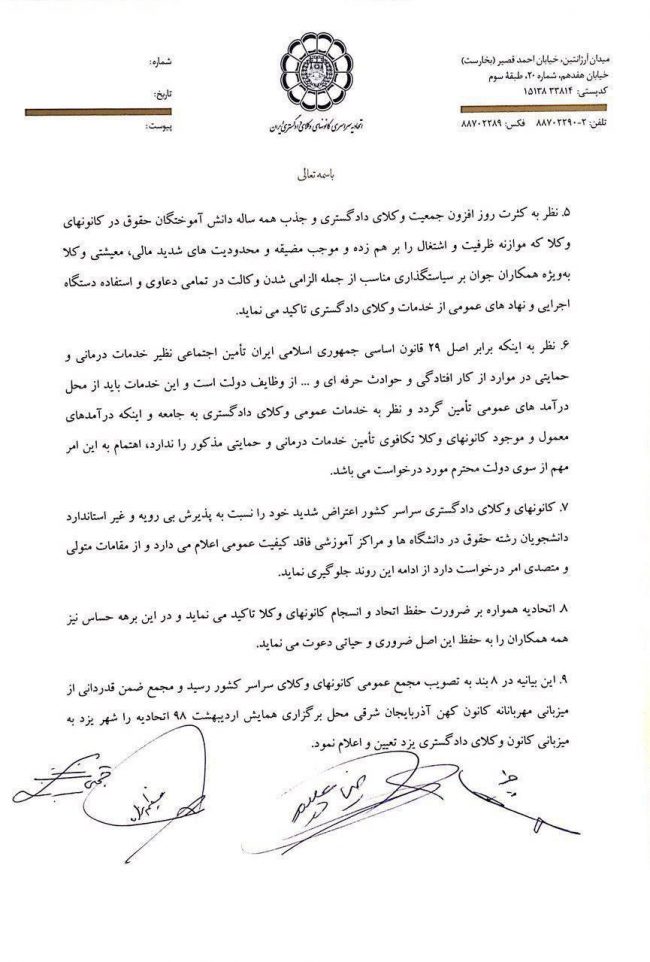 میدان آرژانتین، خیابان احمد قصیر (بخارست)
خیابان هفدهم، شماره ۲۰، طبقهٔ سوم
کدپستی: ۳۳۸۱۴ ۱۵۱۳۸
تلفن: ۲-۸۸۷۰۲۲۹۰ فکس: ۸۸۷۰۲۲۸۹
اتحادیه سراسری کانونهای وکلای دادگستری ایران
شماره:
تاریخ:
پیوست:
باسمه تعالی
۵. نظر به کثرت روز افزون جمعیت وکلای دادگستری و جذب همه ساله دانش آموختگان حقوق در کانونهای
وکلا که موازنه ظرفیت و اشتغال را بر هم زده و موجب مضیقه و محدودیت های شدید مالی، معیشتی وکلا
به‌ویژه همکاران جوان بر سیاستگذاری مناسب از جمله الزامی شدن وکالت در تمامی دعاوی و استفاده دستگاه
اجرایی و نهاد های عمومی از خدمات وکلای دادگستری تاکید می نماید.
۶. نظر به اینکه برابر اصل ۲۹ قانون اساسی جمهوری اسلامی ایران تأمین اجتماعی نظیر خدمات درمانی و
حمایتی در موارد از کار افتادگی و حوادث حرفه ای و ... از وظایف دولت است و این خدمات باید از محل
درآمد های عمومی تأمین گردد و نظر به خدمات عمومی وکلای دادگستری به جامعه و اینکه درآمدهای
معمول و موجود کانونهای وکلا تکافوی تأمین خدمات درمانی و حمایتی مذکور را ندارد، اهتمام به این امر
مهم از سوی دولت محترم مورد درخواست می باشد.
۷. کانونهای وکلای دادگستری سراسر کشور اعتراض شدید خود را نسبت به پذیرش بی رویه و غیر استاندارد
دانشجویان رشته حقوق در دانشگاه ها و مراکز آموزشی فاقد کیفیت عمومی اعلام می دارد و از مقامات متولی
و متصدی امر درخواست دارد از ادامه این روند جلوگیری نماید.
۸. اتحادیه همواره بر ضرورت حفظ اتحاد و انسجام کانونهای وکلا تاکید می نماید و در این برهه حساس نیز
همه همکاران را به حفظ این اصل ضروری و حیاتی دعوت می نماید.
۹. این بیانیه در ۸ بند به تصویب مجمع عمومی کانونهای وکلای سراسر کشور رسید و مجمع ضمن قدردانی از
میزبانی مهربانانه کانون کهن آذربایجان شرقی محل برگزاری همایش اردیبهشت ۹۸ اتحادیه را شهر یزد به
میزبانی کانون وکلای دادگستری یزد تعیین و اعلام نمود.